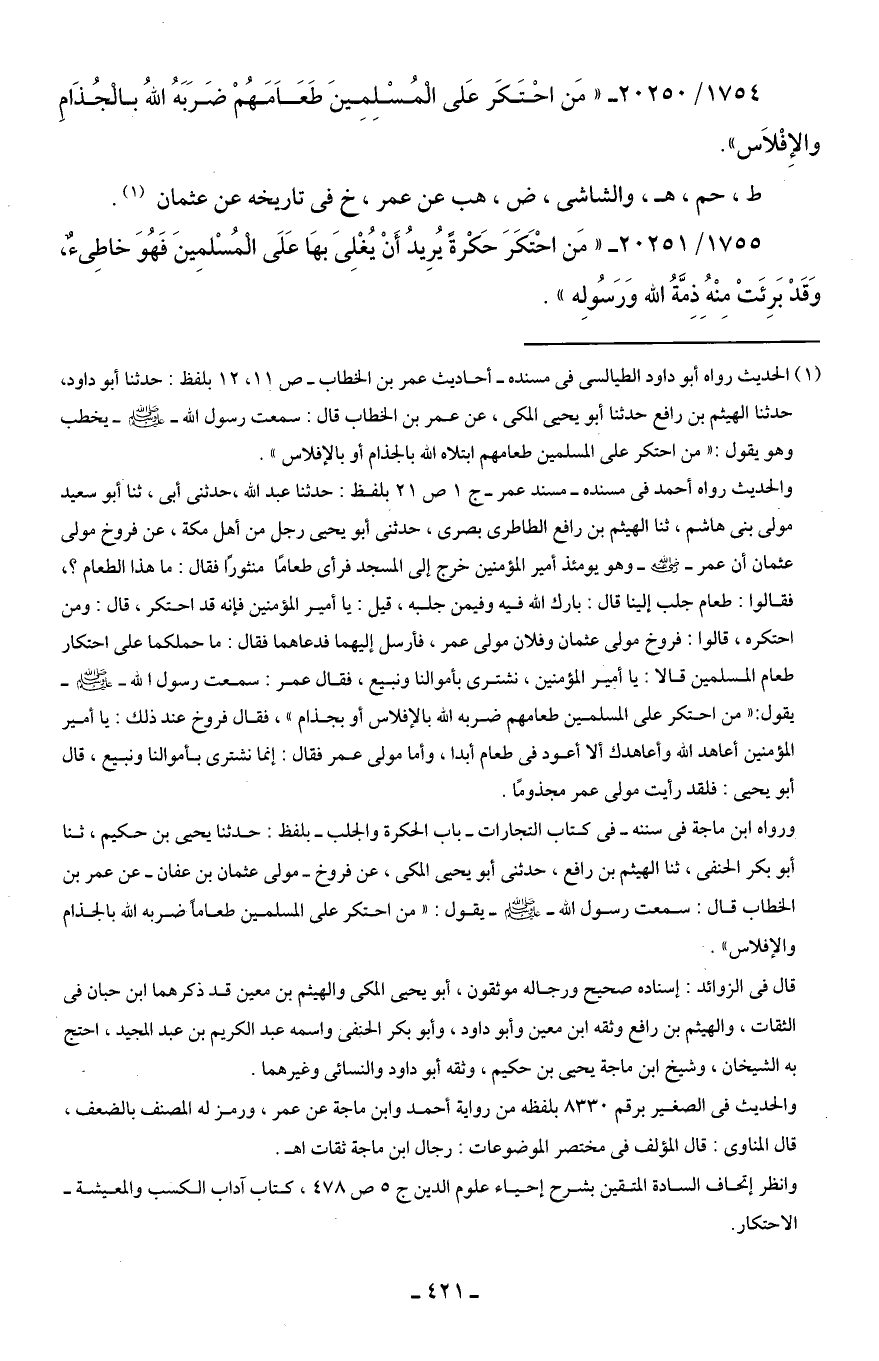 ١٧٥٤/ ٢٠٢٥٠ـ « مَن احْتَكَر عَلى الْمُسْلِمِينَ طَعَامَهُمْ ضَرَبَهُ اللهُ بالْجُذَامِ
والإِفْلاَس».
ط ، حم ، هـ ، والشاشى ، ض ، هب عن عمر ، خ فى تاريخه عن عثمان (١) .
١٧٥٥/ ٢٠٢٥١ـ « مَن احْتَكَرَ حَكْرَةً يُرِيدُ أَنْ يُغْلِىَ بهَا عَلَى الْمُسْلِمينَ فَهُوَ خاطِىءٌ،
وَقَدْ بَرِئَتْ مِنْهُ ذِمَّةُ الله وَرَسُولِه » .
(١) الحديث رواه أبو داود الطيالسى فى مسنده ـ أحاديث عمر بن الخطاب ـ ص ١١، ١٢ بلفظ : حدثنا أبو داود،
حدثنا الهيثم بن رافع حدثنا أبو يحيى المكى ، عن عمر بن الخطاب قال : سمعت رسول الله ـ ﷺ ـ يخطب
وهو يقول :« من احتكر على المسلمين طعامهم ابتلاه الله بالجذام أو بالإفلاس » .
والحديث رواه أحمد فى مسنده ـ مسند عمر ـ ج ١ ص ٢١ بلفظ : حدثنا عبد الله ،حدثنى أبى ، ثنا أبو سعيد
مولى بنى هاشم ، ثنا الهيثم بن رافع الطاطرى بصرى ، حدثنى أبو يحيى رجل من أهل مكة ، عن فروخ مولى
عثمان أن عمر ـ رضي الله عنه ـ وهو يومئذ أمير المؤمنين خرج إلى المسجد فرأى طعامًا منثورًا فقال : ما هذا الطعام ؟،
فقالوا : طعام جلب إلينا قال : بارك الله فيه وفيمن جلبه ، قيل : يا أمير المؤمنين فإنه قد احتكر ، قال : ومن
احتكره ، قالوا : فروخ مولى عثمان وفلان مولى عمر ، فأرسل إليهما فدعاهما فقال : ما حملكما على احتكار
طعام المسلمين قالا : يا أمير المؤمنين ، نشترى بأموالنا ونبيع ، فقال عمر : سمعت رسول ا لله ـ ﷺ ـ
يقول:« من احتكر على المسلمين طعامهم ضربه الله بالإفلاس أو بجذام » ، فقال فروخ عند ذلك : يا أمير
المؤمنين أعاهد الله وأعاهدك ألا أعود فى طعام أبدا ، وأما مولى عمر فقال : إنما نشترى بأموالنا ونبيع ، قال
أبو يحيى : فلقد رأيت مولى عمر مجذومًا .
ورواه ابن ماجة فى سننه ـ فى كتاب التجارات ـ باب الحكرة والجلب ـ بلفظ : حدثنا يحيى بن حكيم ، ثنا
أبو بكر الحنفى ، ثنا الهيثم بن رافع ، حدثنى أبو يحيى المكى ، عن فروخ ـ مولى عثمان بن عفان ـ عن عمر بن
الخطاب قال : سمعت رسول الله ـ ﷺ ـ يقول : « من احتكر على المسلمين طعاماً ضربه الله بالجذام
والإفلاس» .
قال فى الزوائد : إسناده صحيح ورجاله موثقون ، أبو يحيى المكى والهيثم بن معين قد ذكرهما ابن حبان فى
الثقات ، والهيثم بن رافع وثقه ابن معين وأبو داود ، وأبو بكر الحنفى واسمه عبد الكريم بن عبد المجيد ، احتج
به الشيخان ، وشيخ ابن ماجة يحيى بن حكيم ، وثقه أبو داود والنسائى وغيرهما .
والحديث فى الصغير برقم ٨٣٣٠ بلفظه من رواية أحمد وابن ماجة عن عمر ، ورمز له المصنف بالضعف ،
قال المناوى : قال المؤلف فى مختصر الموضوعات : رجال ابن ماجة ثقات اهـ .
وانظر إتحاف السادة المتقين بشرح إحياء علوم الدين ج ٥ ص ٤٧٨ ، كتاب آداب الكسب والمعيشة ـ
الاحتكار.
ـ ٤٢١ ـ